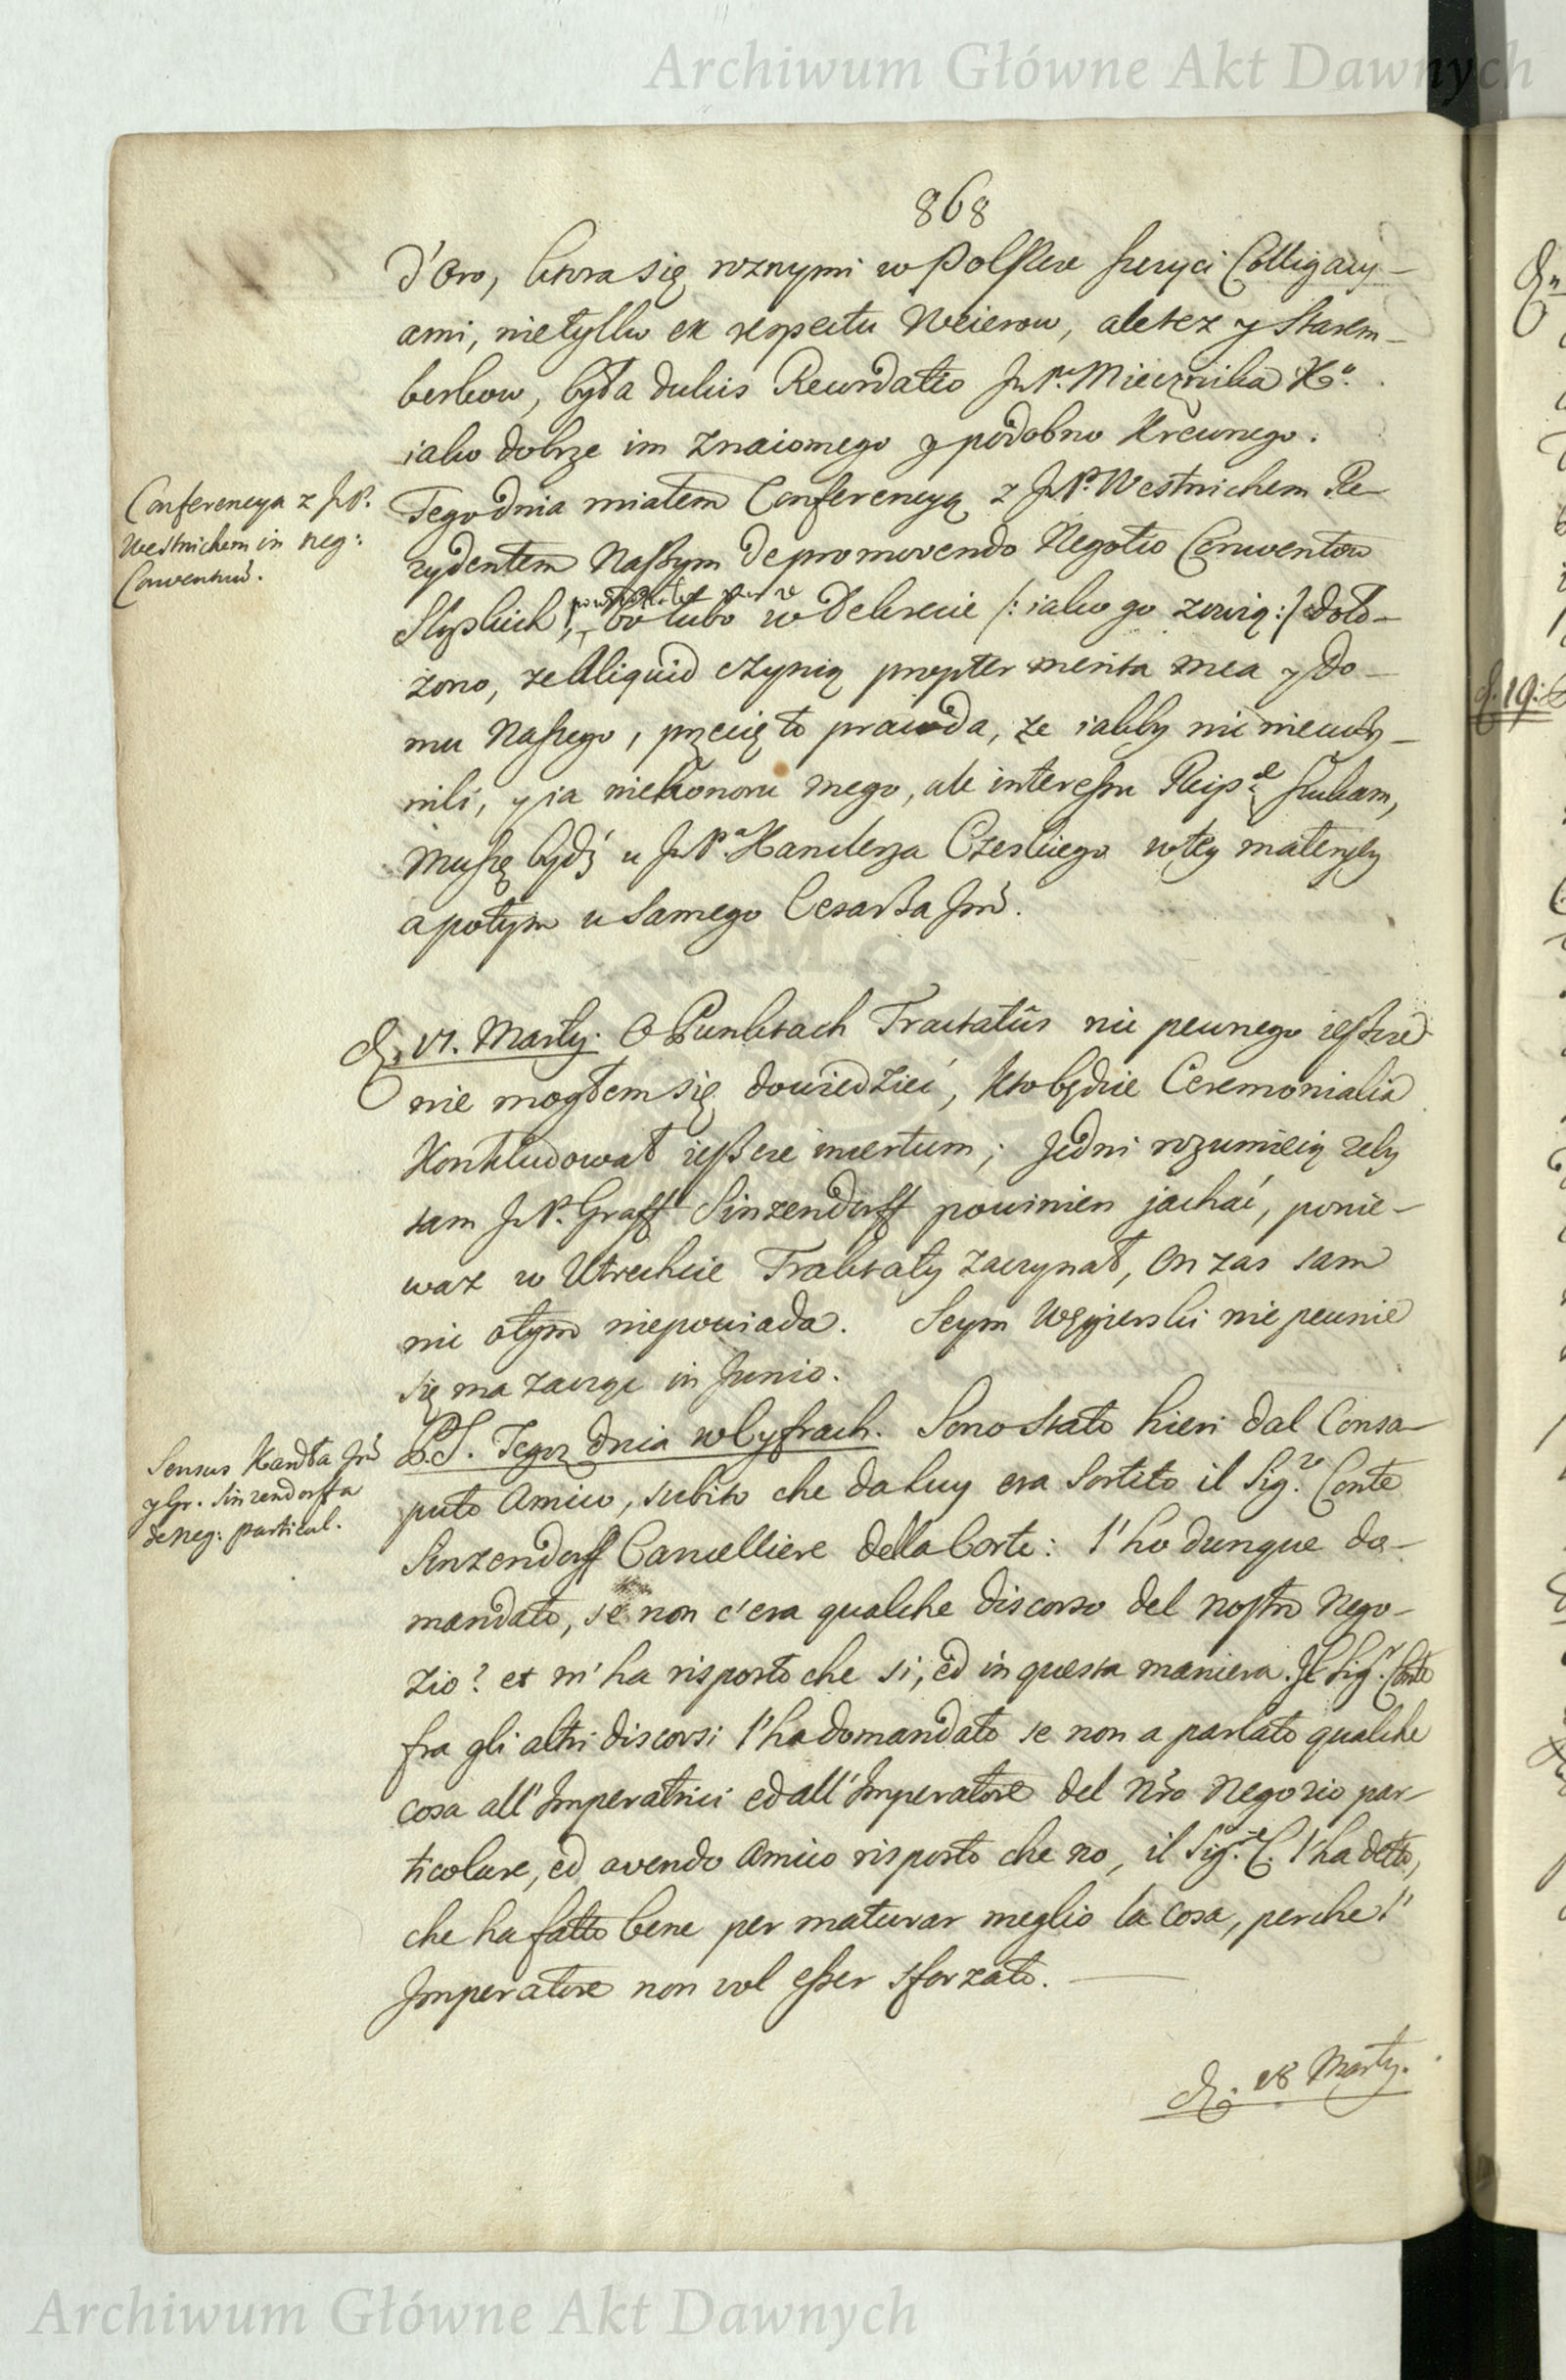 Archiwum Główne Akt Dawnych
868
d'Oro, ktora się roznymi w Polszcze szczyci Colligacy-
ami, nietylko ex respectu Weierow, ale tez y Starem-
berkow, była dulcis Recordatio JnP. Miecznika Ko.
iako dobrze im znaiomego y podobno Krewnego.
Conferencya z JnP.
Westnichem in neg:
Conventus.
Tego dnia miałem Conferencyą z JnP. Westnichem Re-
zydentem Naszym de promovendo Negotio Conventow
Sląskich, bo lubo w Dekrecie /: iako go zowią :/ doło-
żono, ze Aliquid czynią propter merita mea y Do-
mu Naszego, przecię to prawda, ze iakby nic nie uczy-
nili, y ia nie honoru mego, ale interessu Reipce szukam,
Muszę bydź u JnPa Kanclerza Czeskiego w tey materyey
a potym u Samego Cesarza Jmci.
d. 17. Marty. O Punktach Tractatus nic pewnego ieszcze
nie mogłem się dowiedzieć, Kto będzie Ceremonialia
Konkludował ieszcze incertum; Jedni rozumieią zeby
sam JnP. Graff Sinzendorff powinien jachać, ponie-
waz w Utrechcie Traktaty zaczynał, On zas sam
nic o tym niepowiada. Seym Węgierski nie pewnie
się ma zacząc in Junio.
Sensus Kandta Jmci
y Gr. Sinzendorffa
de neg: particul.
P.S. Tegoz dnia w Cyfrach. Sono stato hieri dal Consa-
puto Amico, subito che da luy era Sortito il Sigr. Conte
Sinzendorff Cancelliere della Corte: l'ho dunque do-
mandato, se non c'era qualche discorso del nostro Nego-
zio? et m'ha risposto che si, ed in questa maniera. Il Sigr. Conte
fra gli altri discorsi l'ha domandato se non a parlato qualche
cosa all'Imperatrici ed all'Imperatore del nro Negozio par-
ticolare, ed avendo Amico risposto che no, il Sigre. C. l'ha detto,
che ha fatto bene per maturar meglio la cosa, perche l'
Imperatore non vol esser sforzato.
d. 18 Marty.
d. 19:
Archiwum Główne Akt Dawnych